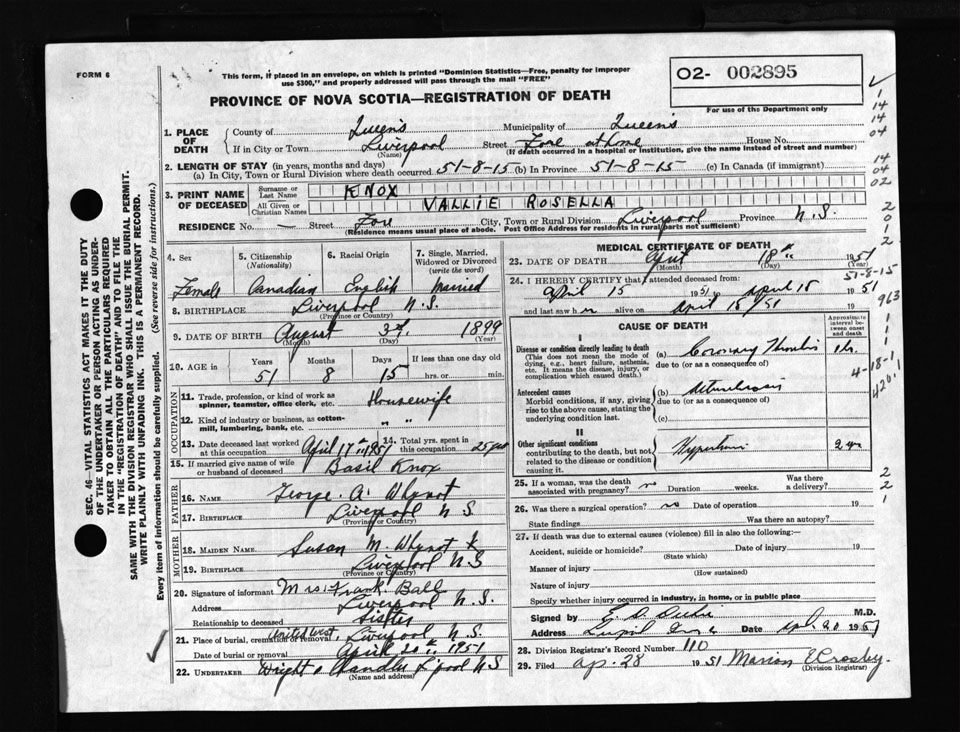 FORM 6
This form, if placed in an envelope, on which is printed "Dominion Statistics—Free, penalty for improper
use $300," and properly addressed will pass through the mail "FREE"
PROVINCE OF NOVA SCOTIA—REGISTRATION OF DEATH
O2- 002895
For use of the Department only
SEC. 46—VITAL STATISTICS ACT MAKES IT THE DUTY
OF THE UNDERTAKER OR PERSON ACTING AS UNDER-
TAKER "TO OBTAIN ALL THE PARTICULARS REQUIRED
IN THE "REGISTRATION OF DEATH" AND TO FILE THE
SAME WITH THE DIVISION REGISTRAR WHO SHALL ISSUE THE BURIAL PERMIT.
WRITE PLAINLY WITH UNFADING INK. THIS IS A PERMANENT RECORD.
Every item of information should be carefully supplied. (See reverse side for instructions.)
1. PLACE OF DEATH
County of Queens Municipality of Queens
If in City or Town Liverpool Street Fore at home House No.
(Name) (If death occurred in a hospital or institution, give the name instead of street and number)
2. LENGTH OF STAY (in years, months and days)
(a) In City, Town or Rural Division where death occurred 51-8-15 (b) In Province 51-8-15 (c) In Canada (if immigrant)
3. PRINT NAME OF DECEASED
Surname or Last Name KNOX
All Given or Christian Names VALLIE ROSELLA
RESIDENCE No. — Street Fore City, Town or Rural Division Liverpool Province N.S.
(Residence means usual place of abode. Post Office Address for residents in rural parts not sufficient)
4. Sex Female
5. Citizenship (Nationality) Canadian
6. Racial Origin English
7. Single, Married, Widowed or Divorced (write the word) Married
8. BIRTHPLACE Liverpool N.S.
(Province or Country)
9. DATE OF BIRTH August 3rd, 1899
(Month) (Day) (Year)
10. AGE in Years Months Days If less than one day old
51 8 15 hrs. or min.
OCCUPATION
11. Trade, profession, or kind of work as spinner, teamster, office clerk, etc. Housewife
12. Kind of industry or business, as cotton-mill, lumbering, bank, etc. " "
13. Date deceased last worked at this occupation April 17th 1951
14. Total yrs. spent in this occupation 25 yrs
15. If married give name of wife or husband of deceased Basil Knox
FATHER
16. NAME George A. Whynot
17. BIRTHPLACE Liverpool N S
(Province or Country)
MOTHER
18. MAIDEN NAME Susan M. Whynot
19. BIRTHPLACE Liverpool N S
(Province or Country)
20. Signature of informant Mrs. Frank Ball
Address Liverpool N.S.
Relationship to deceased Sister
21. Place of burial, cremation or removal, Liverpool N.S.
Date of burial or removal April 20th 1951
22. UNDERTAKER Wright & Chandler L'pool N S
(Name and address)
MEDICAL CERTIFICATE OF DEATH
23. DATE OF DEATH April 18th 1951
(Month) (Day) (Year)
24. I HEREBY CERTIFY that I attended deceased from:
April 15 1951 to April 18 1951
and last saw her alive on April 18/51
CAUSE OF DEATH
Approximate interval between onset and death
I
Disease or condition directly leading to death
(This does not mean the mode of dying, e.g., heart failure, asthenia, etc. It means the disease, injury, or complication which caused death.)
(a) Coronary Thrombosis 1 hr.
due to (or as a consequence of)
Antecedent causes
Morbid conditions, if any, giving rise to the above cause, stating the underlying condition last.
(b)
due to (or as a consequence of)
(c)
II
Other significant conditions
contributing to the death, but not related to the disease or condition causing it.
2 yrs
25. If a woman, was the death associated with pregnancy? no Duration weeks. Was there a delivery?
26. Was there a surgical operation? no Date of operation 19
State findings Was there an autopsy?
27. If death was due to external causes (violence) fill in also the following:—
Accident, suicide or homicide? Date of injury 19
(State which)
Manner of injury
(How sustained)
Nature of injury
Specify whether injury occurred in industry, in home, or in public place
Signed by M.D.
Address Date Apl. 20 1951
28. Division Registrar's Record Number 110
29. Filed Ap. 28 1951 Marion E Crosby
(Division Registrar)
1
14
14
04
14
04
02
2
0
1
2
51-8-15
963
1
1
1
4-18-1
420.1
2
2
1